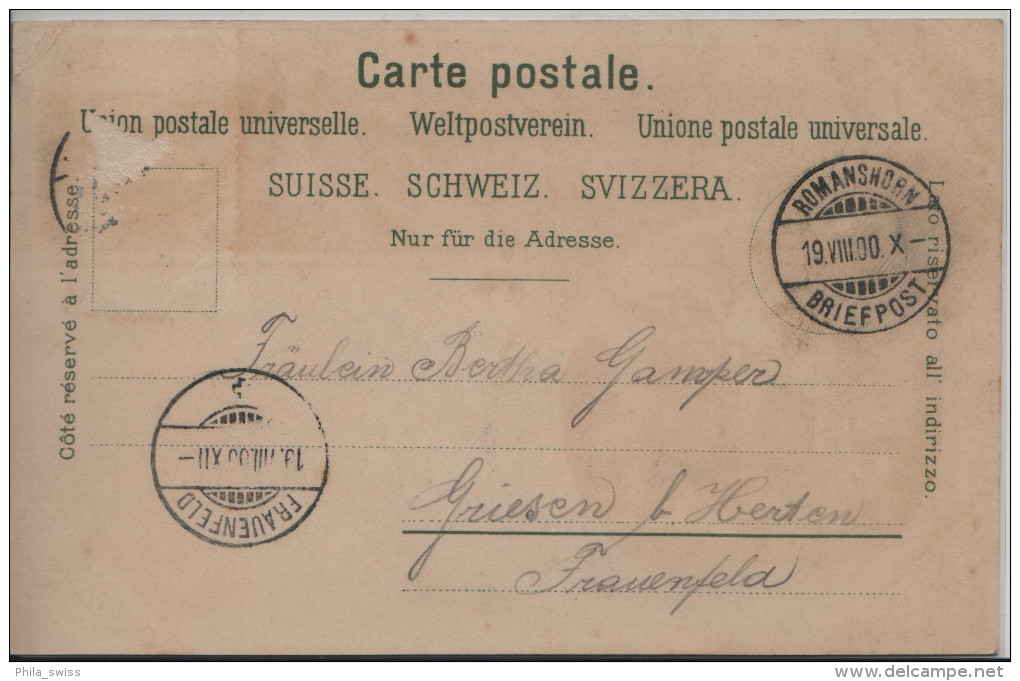 Carte postale.
Union postale universelle. Weltpostverein. Unione postale universale.
SUISSE. SCHWEIZ. SVIZZERA.
Nur für die Adresse.
Côté réservé à l'adresse.
Lato riservato all' indirizzo.
ROMANSHORN
19.VIII.00. X–
BRIEFPOST
Fräulein Bertha Gamper
19.VIII.00 XII–
FRAUENFELD
Griesen b. Herten
Frauenfeld
Phila_swiss
delcampe.net